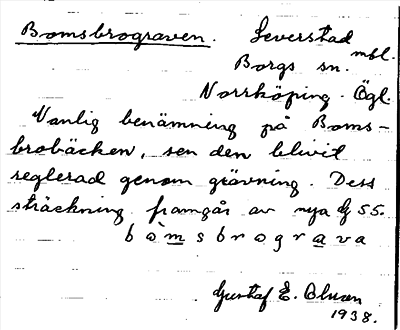 Bomsbrograven. Leverstad
mbl.
Borgs sn.
Norrköping. Ögl.
Vanlig benämning på Boms-
brobäcken, sen den blivit
reglerad genom grävning. Dess
sträckning framgår av nya G 55.
bòmsbrograva
Gustaf E. Olsson
1938.